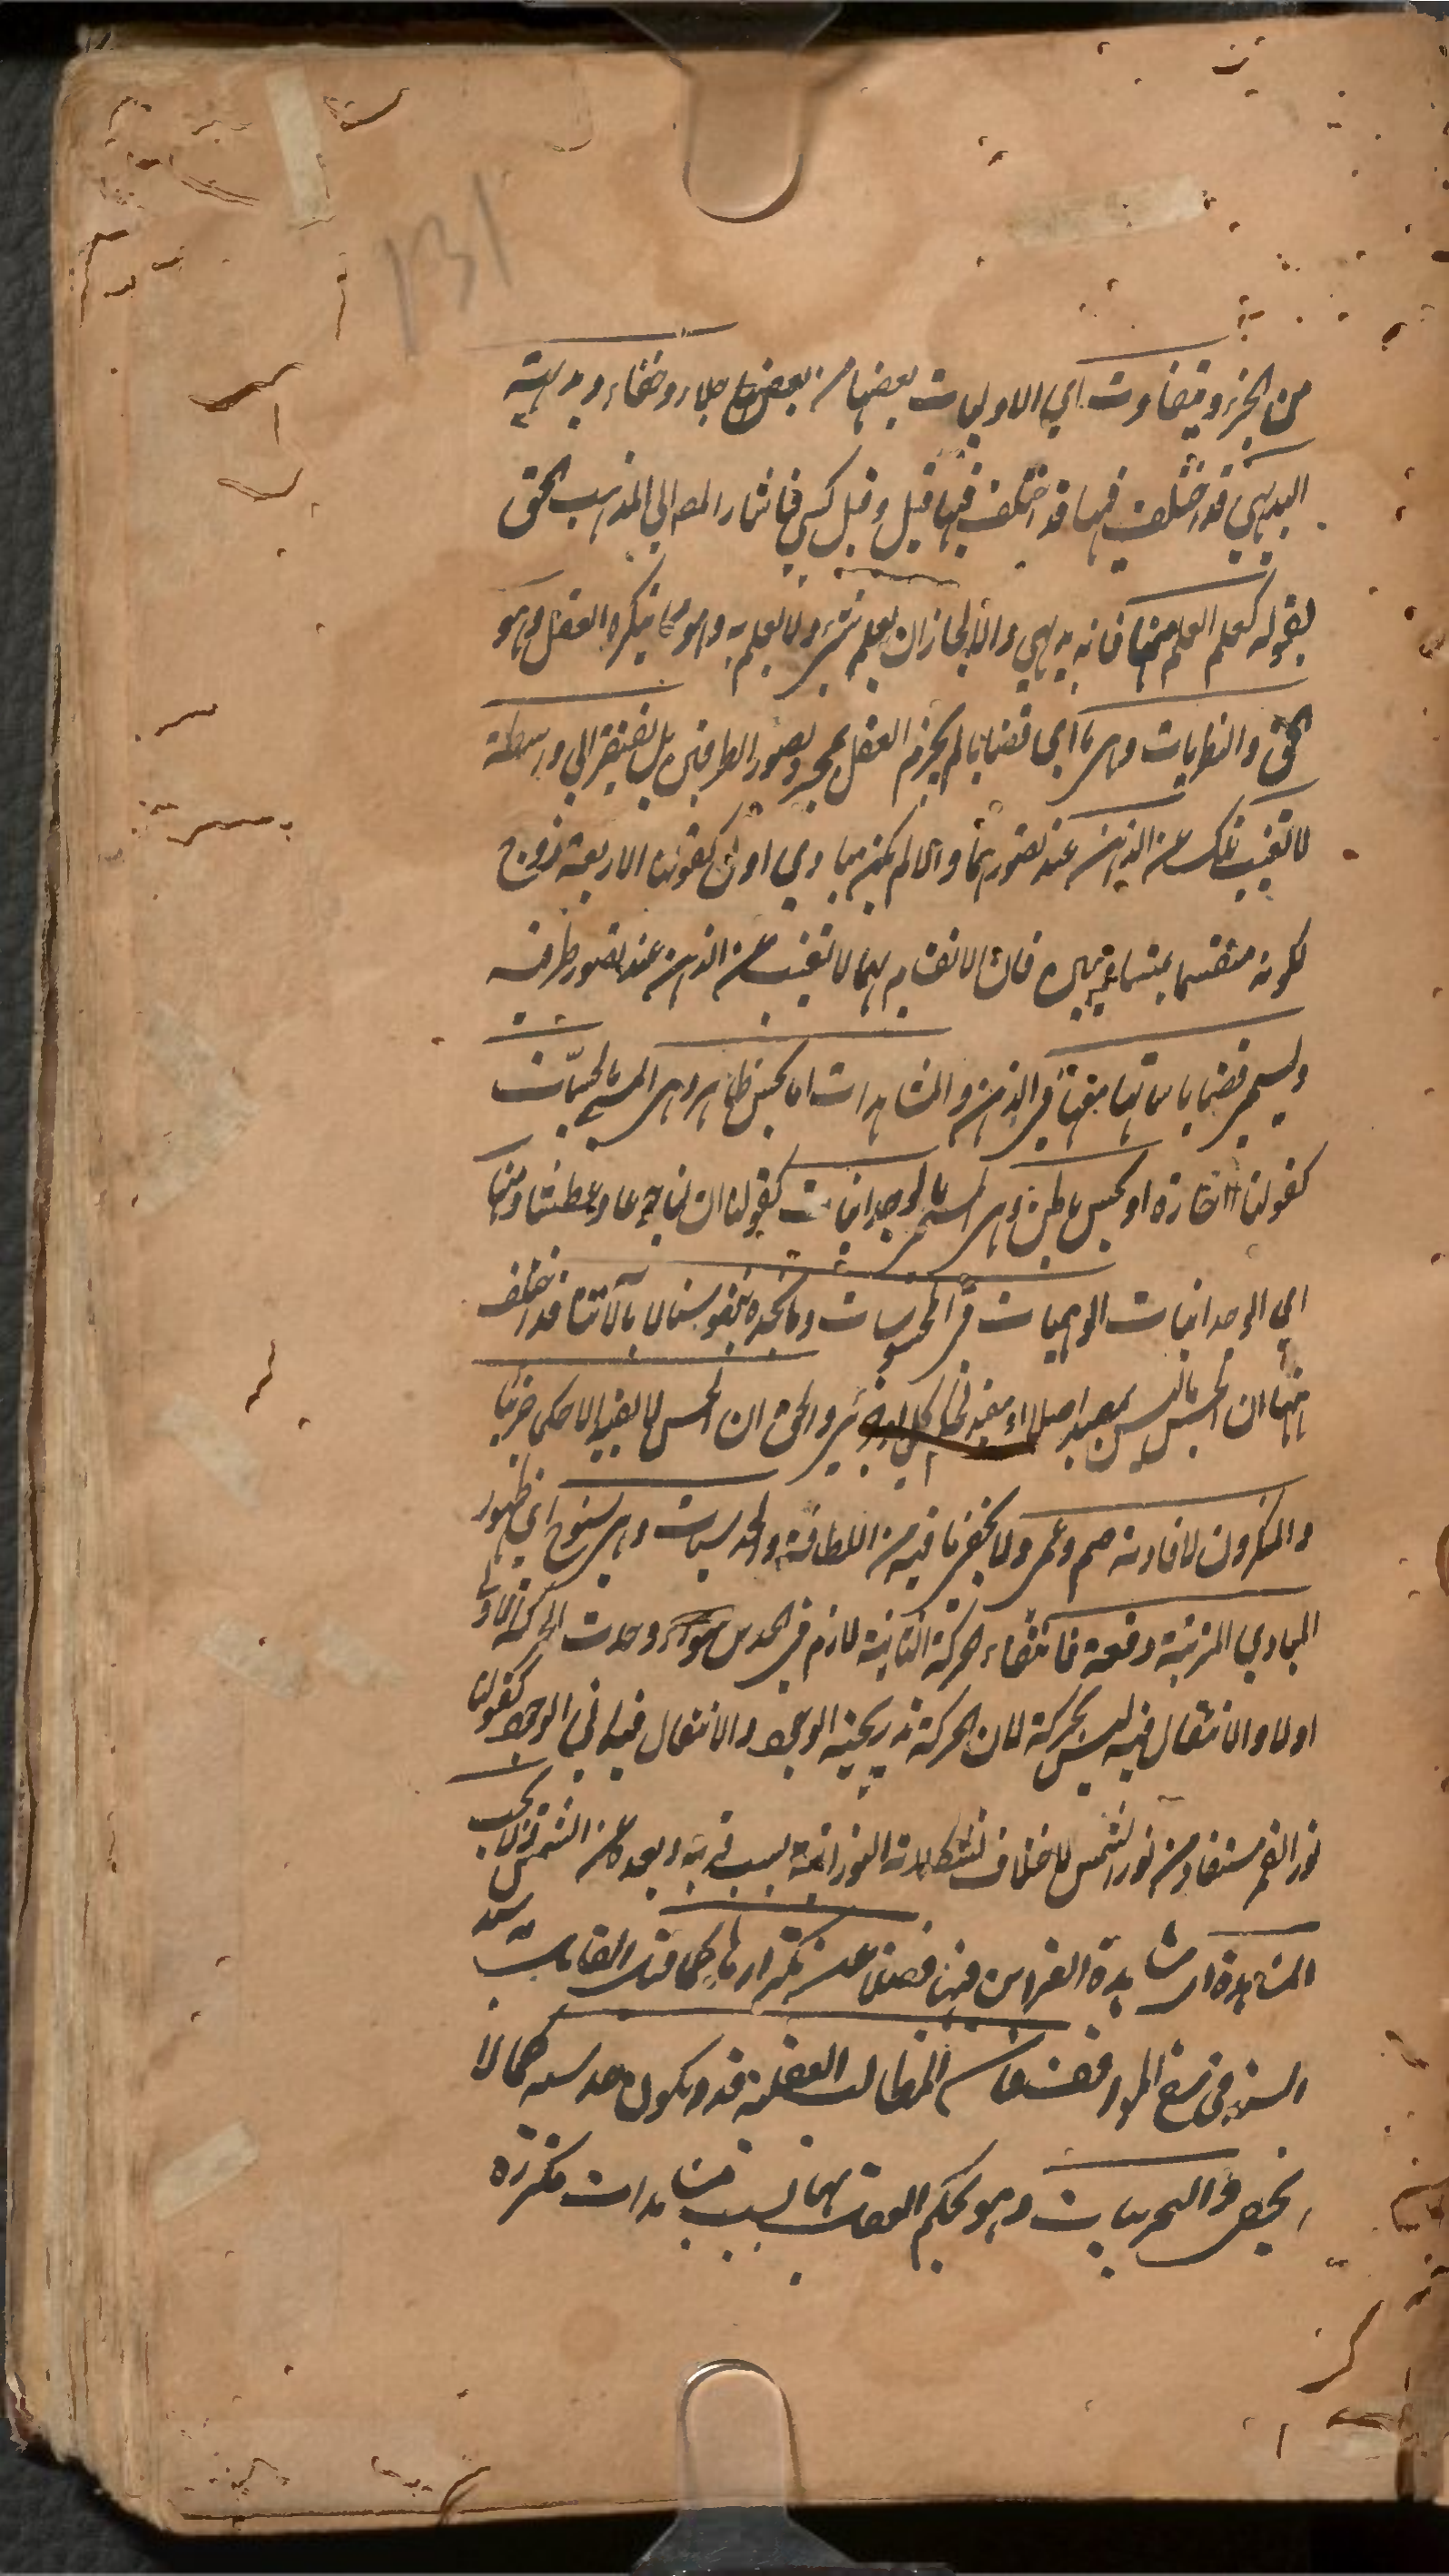 131
من الجزء وتتفاوت اي الاوليات بعضها من بعض جلاء وخفاء وبداهية
البديهي قد اختلف فيها قد اختلف فيها قيل وقيل كسبي فاشار المص الى المذهب الحق
بقوله كعلم العلم منها فانه بديهي والا لجاز ان يعلم شيء ولا يعلم به وهو مما ينكره العقل وهو
الحق والفطريات وهي ما اي قضايا لم يجزم العقل بمجرد تصور الطرفين بل تفتقر الى واسطة
لا تغيب تلك عن الذهن عند تصورهما والا لم تكن مبادي اول كقولنا الاربعة زوج
لكونه منقسما بمتساويين فان الانقسام بهما لا تغيب عن الذهن عند تصور طرفه
وتسمى قضايا قياساتها معها في الذهن والمشاهدات اما بحس ظاهر وهي المسمى بالحسيات
كقولنا النار حارة او بحس باطن وهي المسمى بالوجدانيات كقولنا ان لنا جوعا وعطشا ومنها
اي الوجدانيات الوهميات في المحسوسات وما نجده بنفوسنا لا بآلاتنا قد اختلف
ان الحس ليس بمفيد اصلا او مفيد والحق ان الحس لا يفيد الا حكما جزئيا
والمنكرون لافادته صم وعمي ولا يخفى ما فيه من اللطافة والحدسيات وهي سنوح اي ظهور
المبادي المرتبة دفعة فانتفاء الحركة الثانية لازم في الحدس سواء وجدت الحركة الاولى
اولا والانتقال فيه ليس بحركة لان الحركة تدريجية الوجود والانتقال فيه اني الوجود كقولنا
نور القمر مستفاد من نور الشمس لاختلاف تشكلاته النورانية بسبب قربه وبعده عن الشمس ولا يجب
المشاهدة اي مشاهدة القرائن فيها فضلا عن تكرارها كما قيل القائل سيد
السند في شرح المواقف فان المطالب العقلية قد يكون حدسية كما لا
يخفى والتجربيات وهو يحكم العقل بها بسبب مشاهدات متكررة